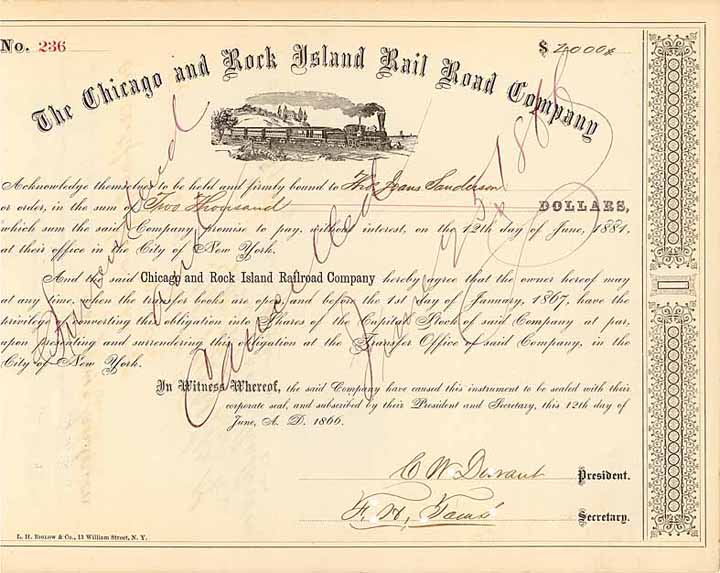 No. 236
$ 2000
The Chicago and Rock Island Rail Road Company
Acknowledge themselves to be held and firmly bound to Thos Evans Sanderson
or order, in the sum of Two Thousand DOLLARS,
which sum the said Company promise to pay, without interest, on the 12th day of June, 1881,
at their office in the City of New York.
And the said Chicago and Rock Island Railroad Company hereby agree that the owner hereof may
at any time, when the transfer books are open, and before the 1st day of January, 1867, have the
privilege of converting this obligation into Shares of the Capital Stock of said Company at par,
upon presenting and surrendering this obligation at the Transfer Office of said Company, in the
City of New York.
In Witness Whereof, the said Company have caused this instrument to be sealed with their
corporate seal, and subscribed by their President and Secretary, this 12th day of
June, A. D. 1866.
C W Durant President.
F. H. Tows Secretary.
L. H. Biglow & Co., 13 William Street, N. Y.
Surrendered
and
Cancelled
1866